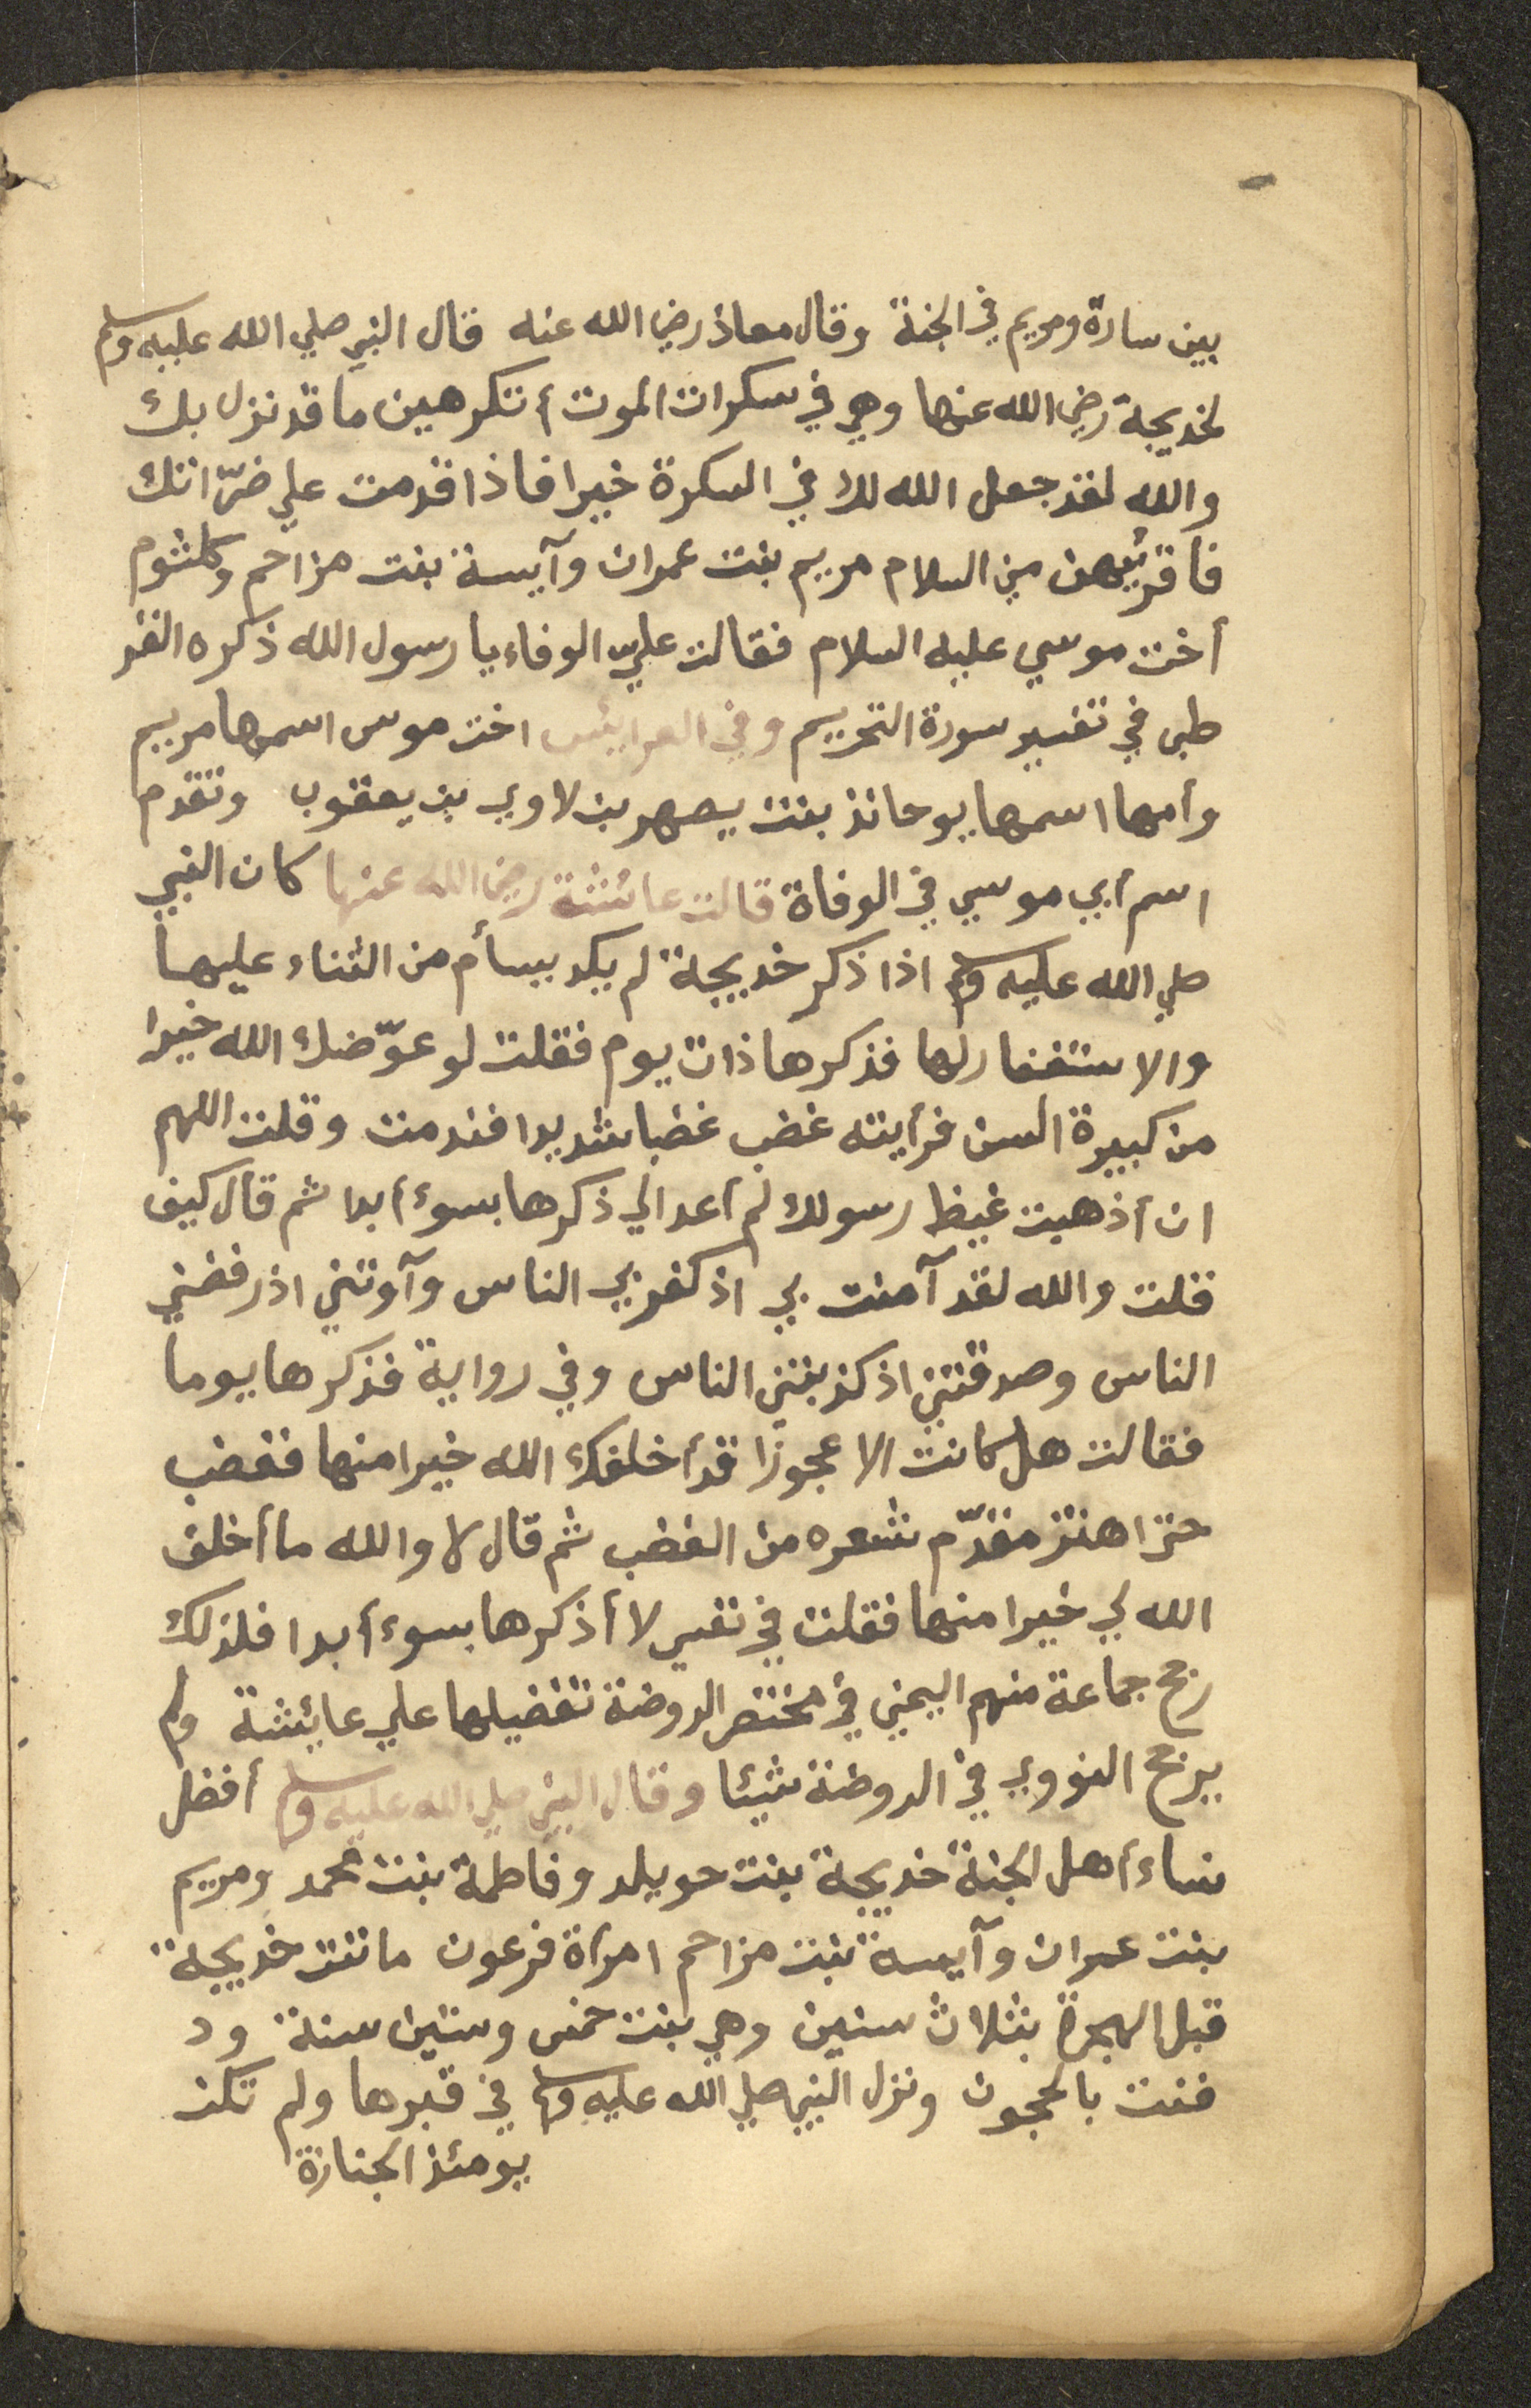 بين سارة ومريم في الجنة وقال معاذ رضي الله عنه قال النبي صلي الله عليه وسلم
لخديجة رضي الله عنها وهي في سكرات الموت أتكرهين ما قد نزل بك
والله لقد جعل الله لك في السكرة خيرا فاذا قدمت علي ضرّاتك
فأقرئيهن مني السلام مريم بنت عمران وآيسة بنت مزاحم وكلثوم
أخت موسي عليه السلام فقالت عليّ الوفاء يا رسول الله ذكره القر
طبي في تفسير سورة التحريم وفي العرايئس اخت موسى اسمها مريم
وأمها اسمها يوحانذ بنت يصهر بن لاوي بن يعقوب وتقدم
اسم أبي موسي في الوفاة قالت عائشة رضي الله عنها كان النبي
صلي الله عليه وسلم اذا ذكر خديجة لم يكد يسأم من الثناء عليها
والاستغفار لها فذكرها ذات يوم فقلت لو عوّضك الله خيرا
من كبيرة السن فرأيته غضب غضبا شديدا فندمت وقلت اللهم
ان أذهبت غيظ رسولك لم أعد الي ذكرها بسوء أبدا ثم قال كيف
قلت والله لقد آمنت بي اذ كفر بي الناس وآوتني اذ رفضني
الناس وصدقتني اذ كذبنني الناس وفي رواية فذكرها يوما
فقالت هل كانت الا عجوزا قد أخلفك الله خيرا منها فغضب
حتى اهتز مقدّم شعره من الغضب ثم قال لا والله ما أخلف
الله لي خيرا منها فقلت في نفسي لا أذكرها بسوء أبدا فلذلك
رجح جماعة منهم اليمني في مختصر الروضة تفضيلها علي عايئشة ولم
يرجح النووي في الروضة شيئا وقال النبي صلي الله عليه وسلم أفضل
نساء أهل الجنة خديجة بنت حويلد وفاطمة بنت محمد ومريم
بنت عمران وآيسة بنت مزاحم امرأة فرعون ماتت خديجة
قبل الهجرة بثلاث سنين وهي بنت خمس وستين سنة ود
فنت بالحجون ونزل النبي صلي الله عليه وسلم في قبرها ولم تكن
يومئذ الجنازة